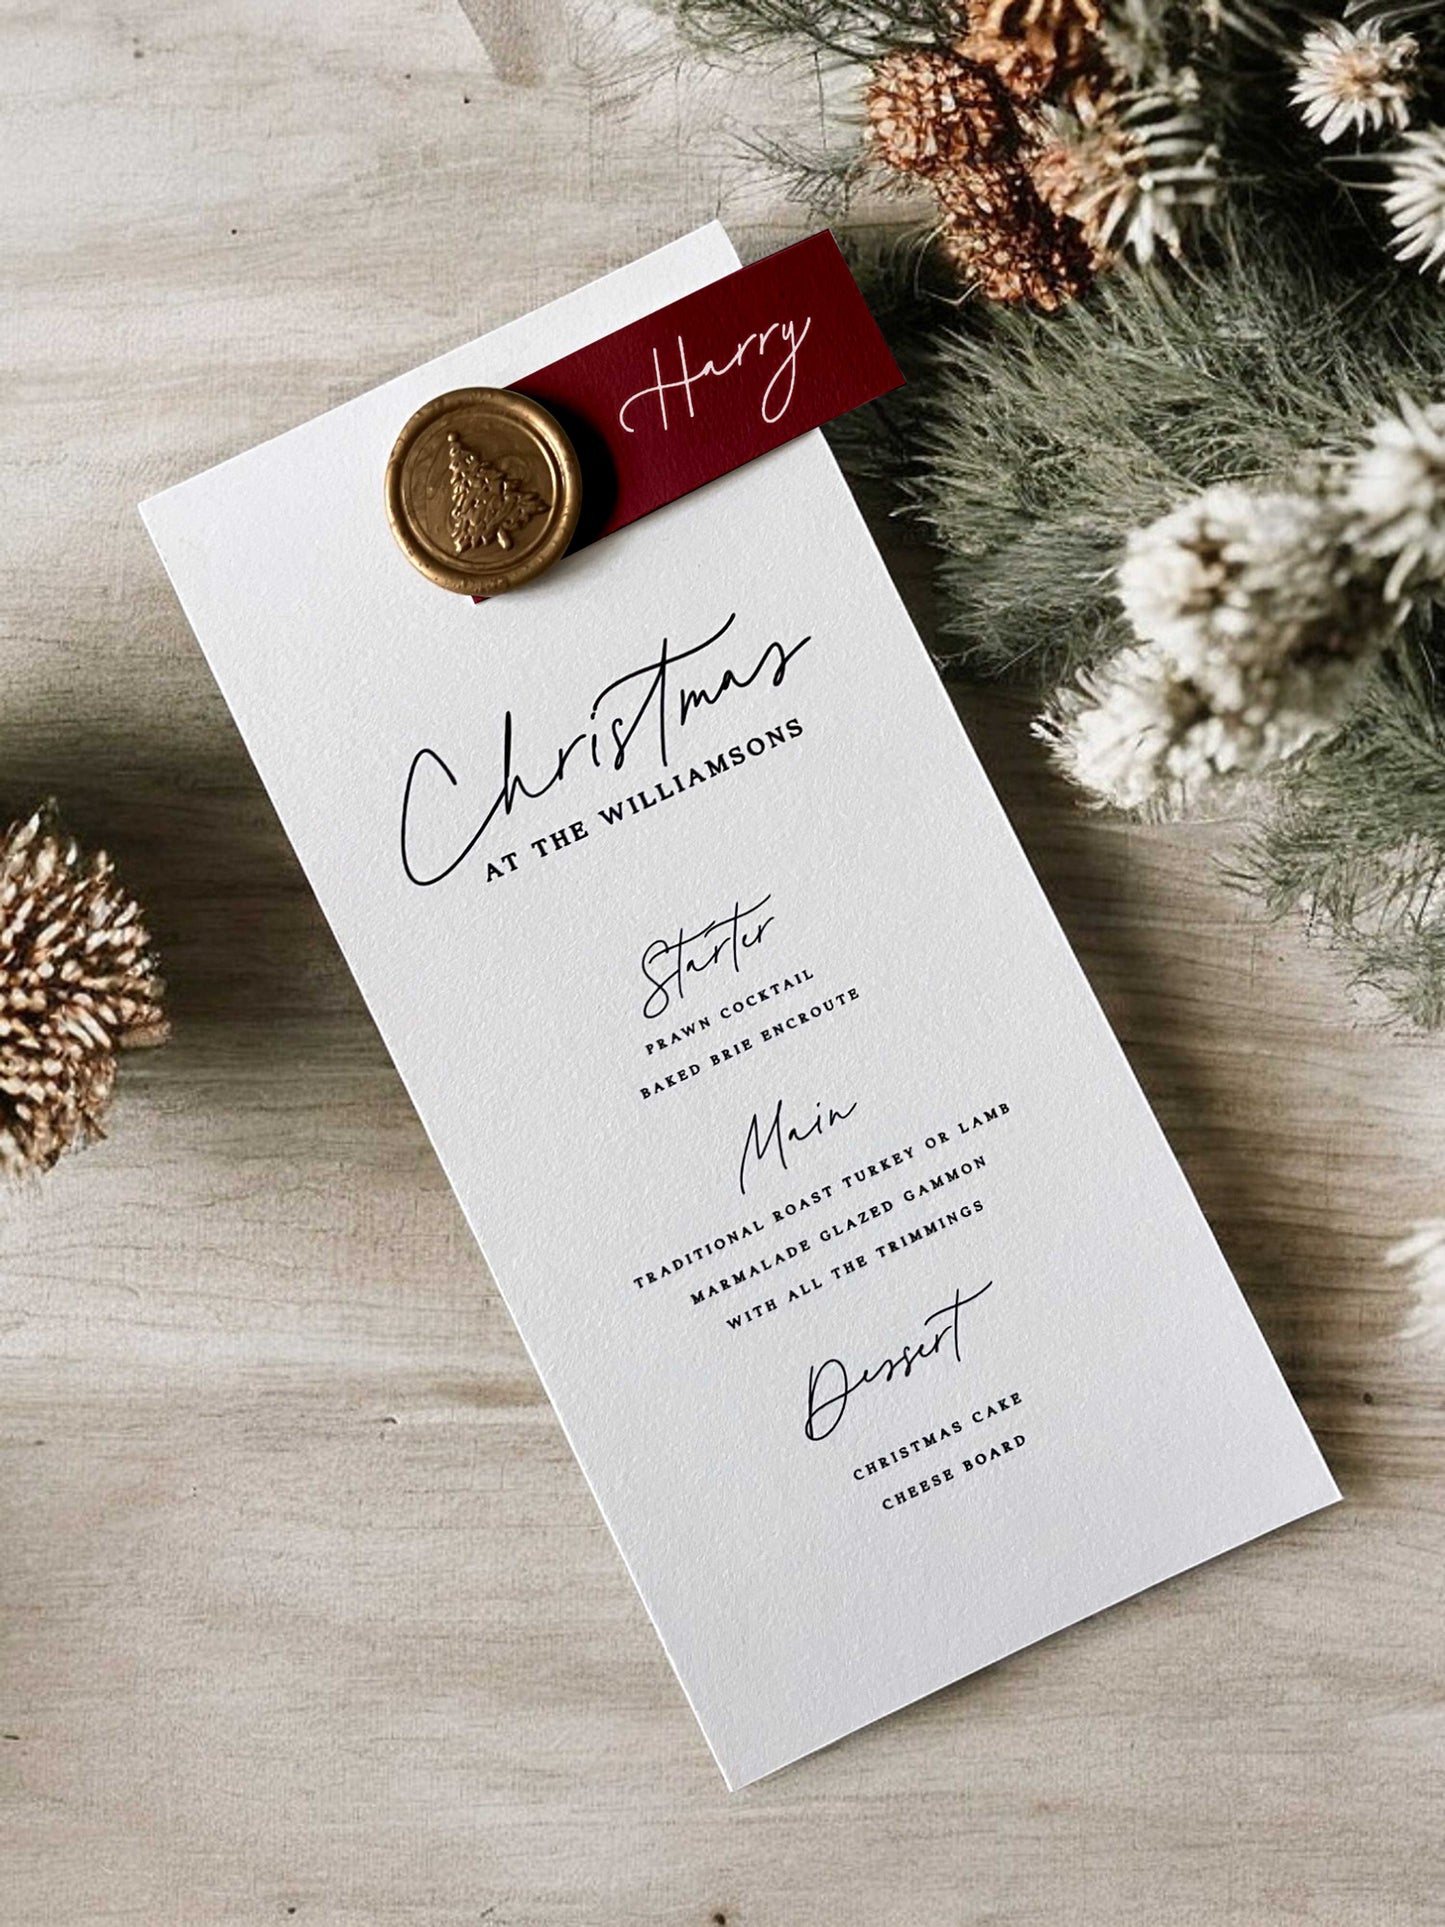 Harry
Christmas
AT THE WILLIAMSONS
Starter
PRAWN COCKTAIL
BAKED BRIE ENCROUTE
Main
TRADITIONAL ROAST TURKEY OR LAMB
MARMALADE GLAZED GAMMON
WITH ALL THE TRIMMINGS
Dessert
CHRISTMAS CAKE
CHEESE BOARD